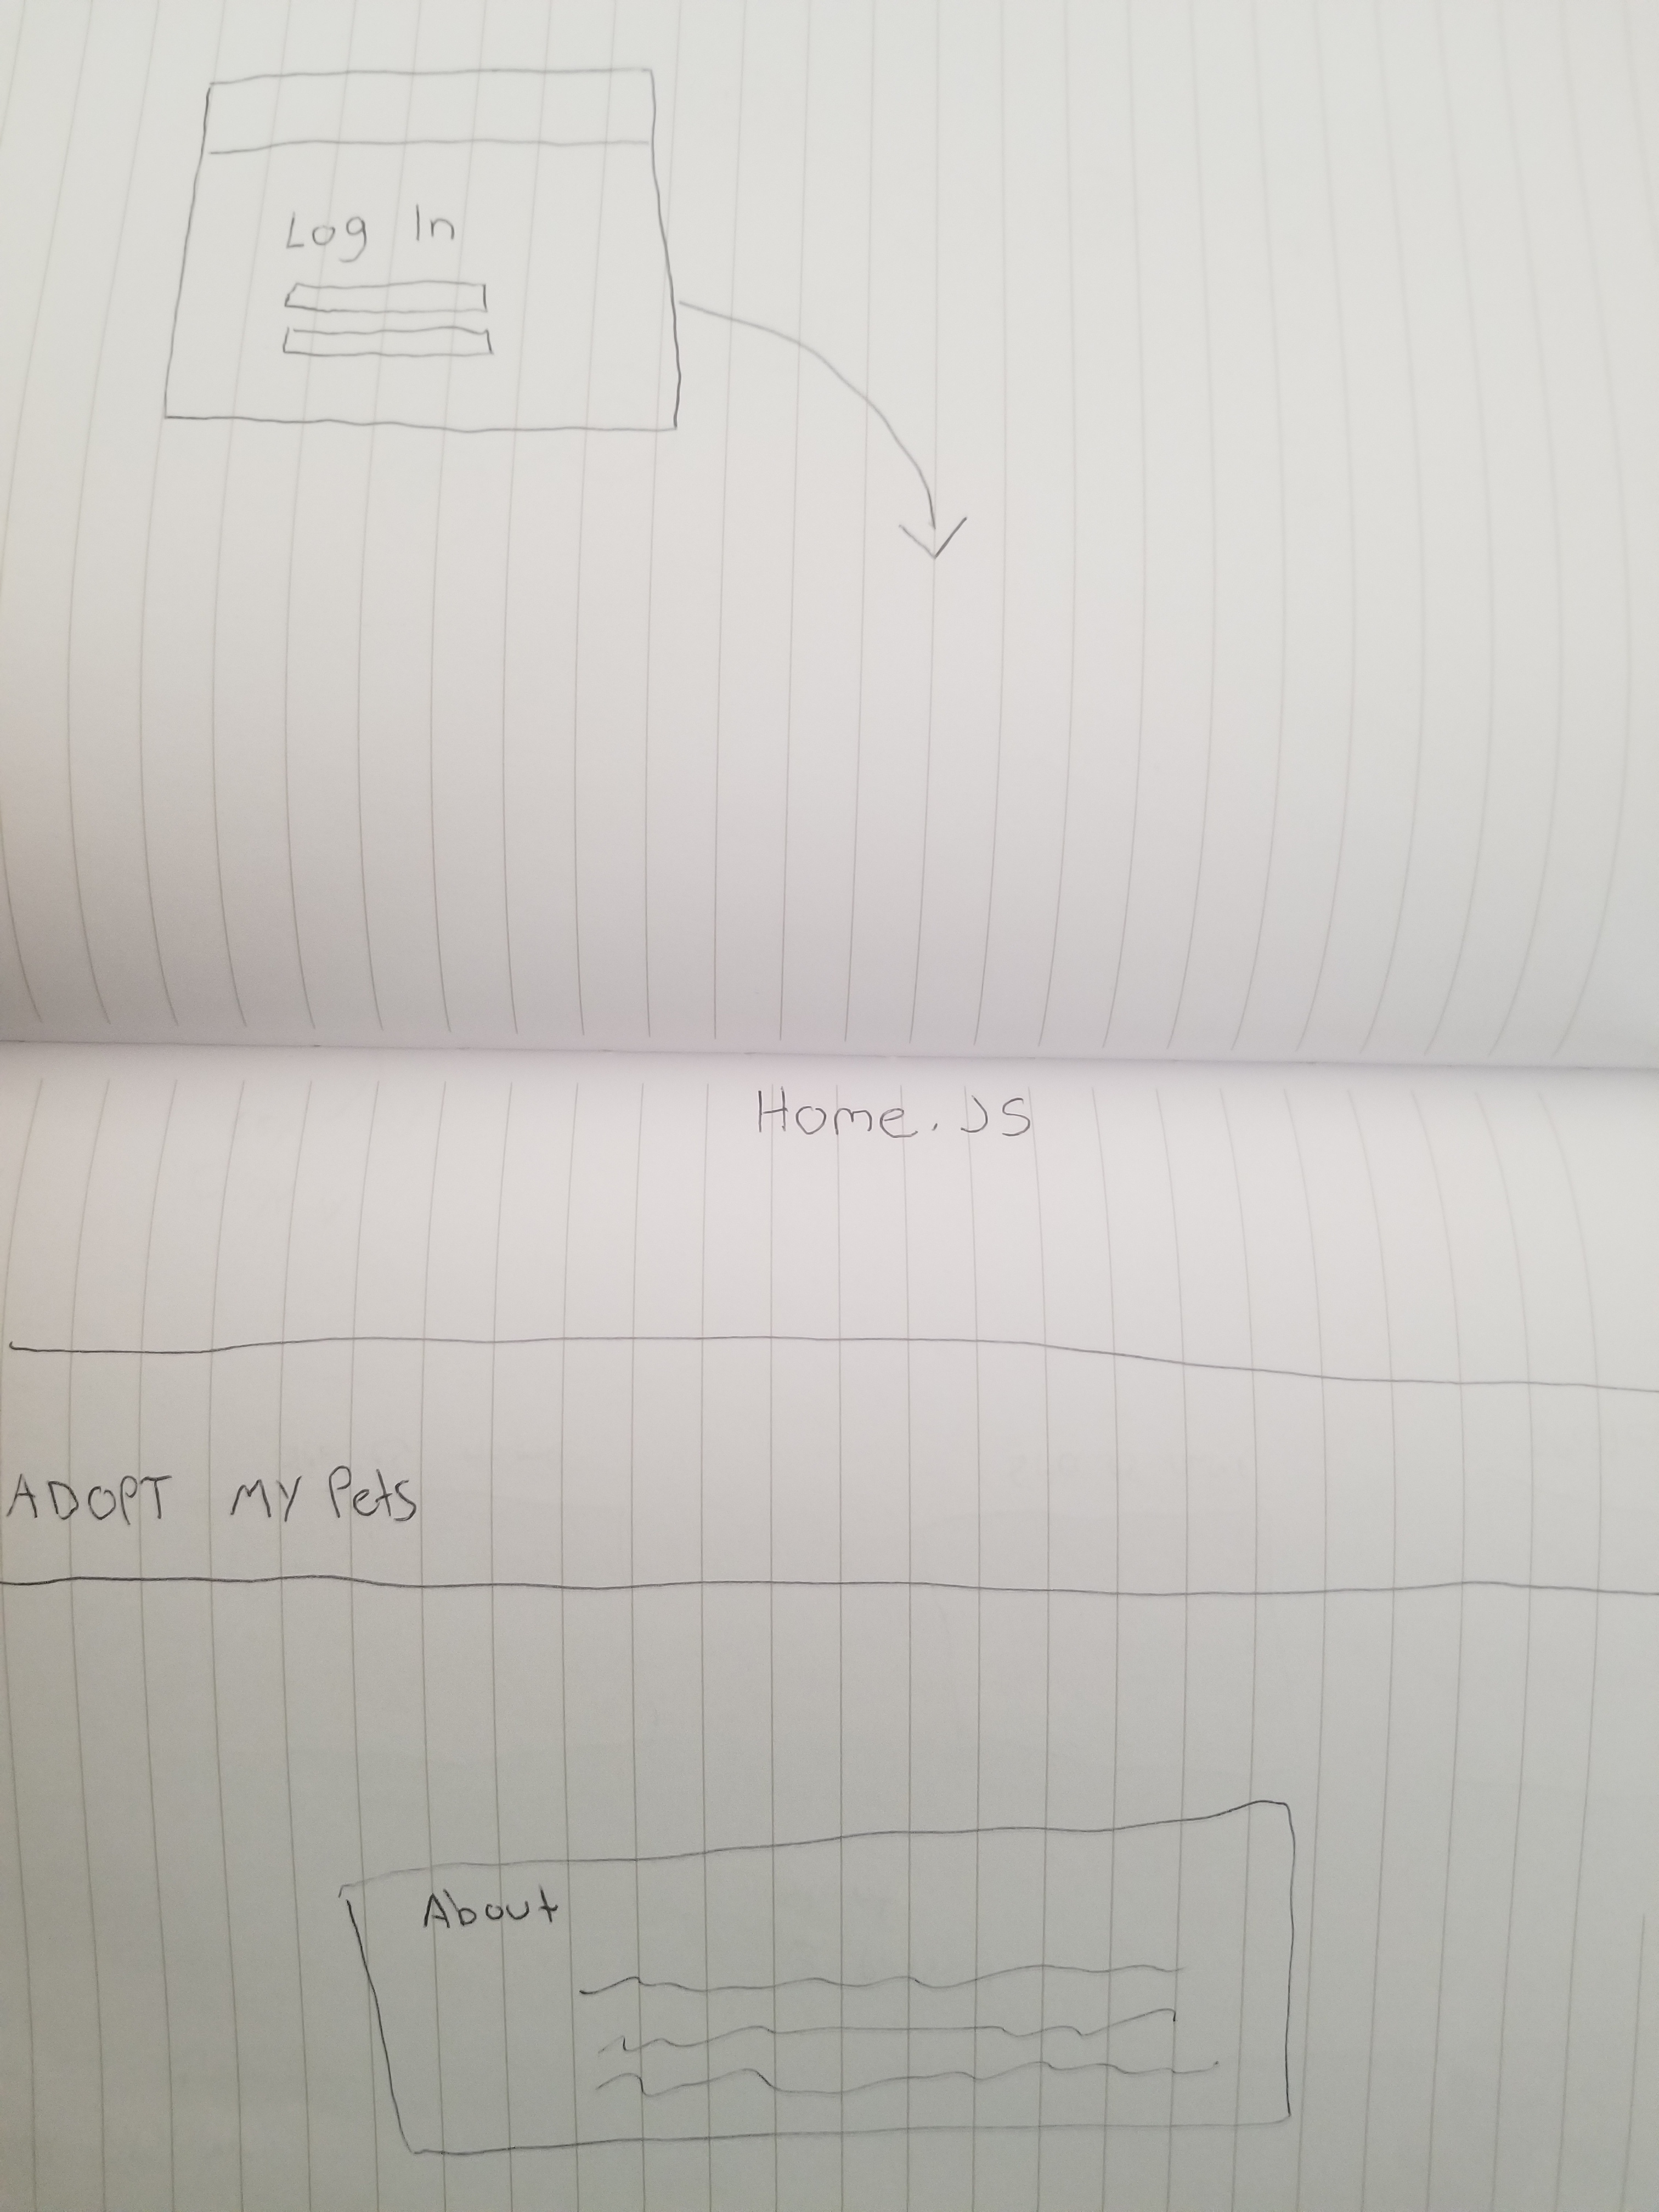 Log In
Home.JS
ADOPT MY Pets
About